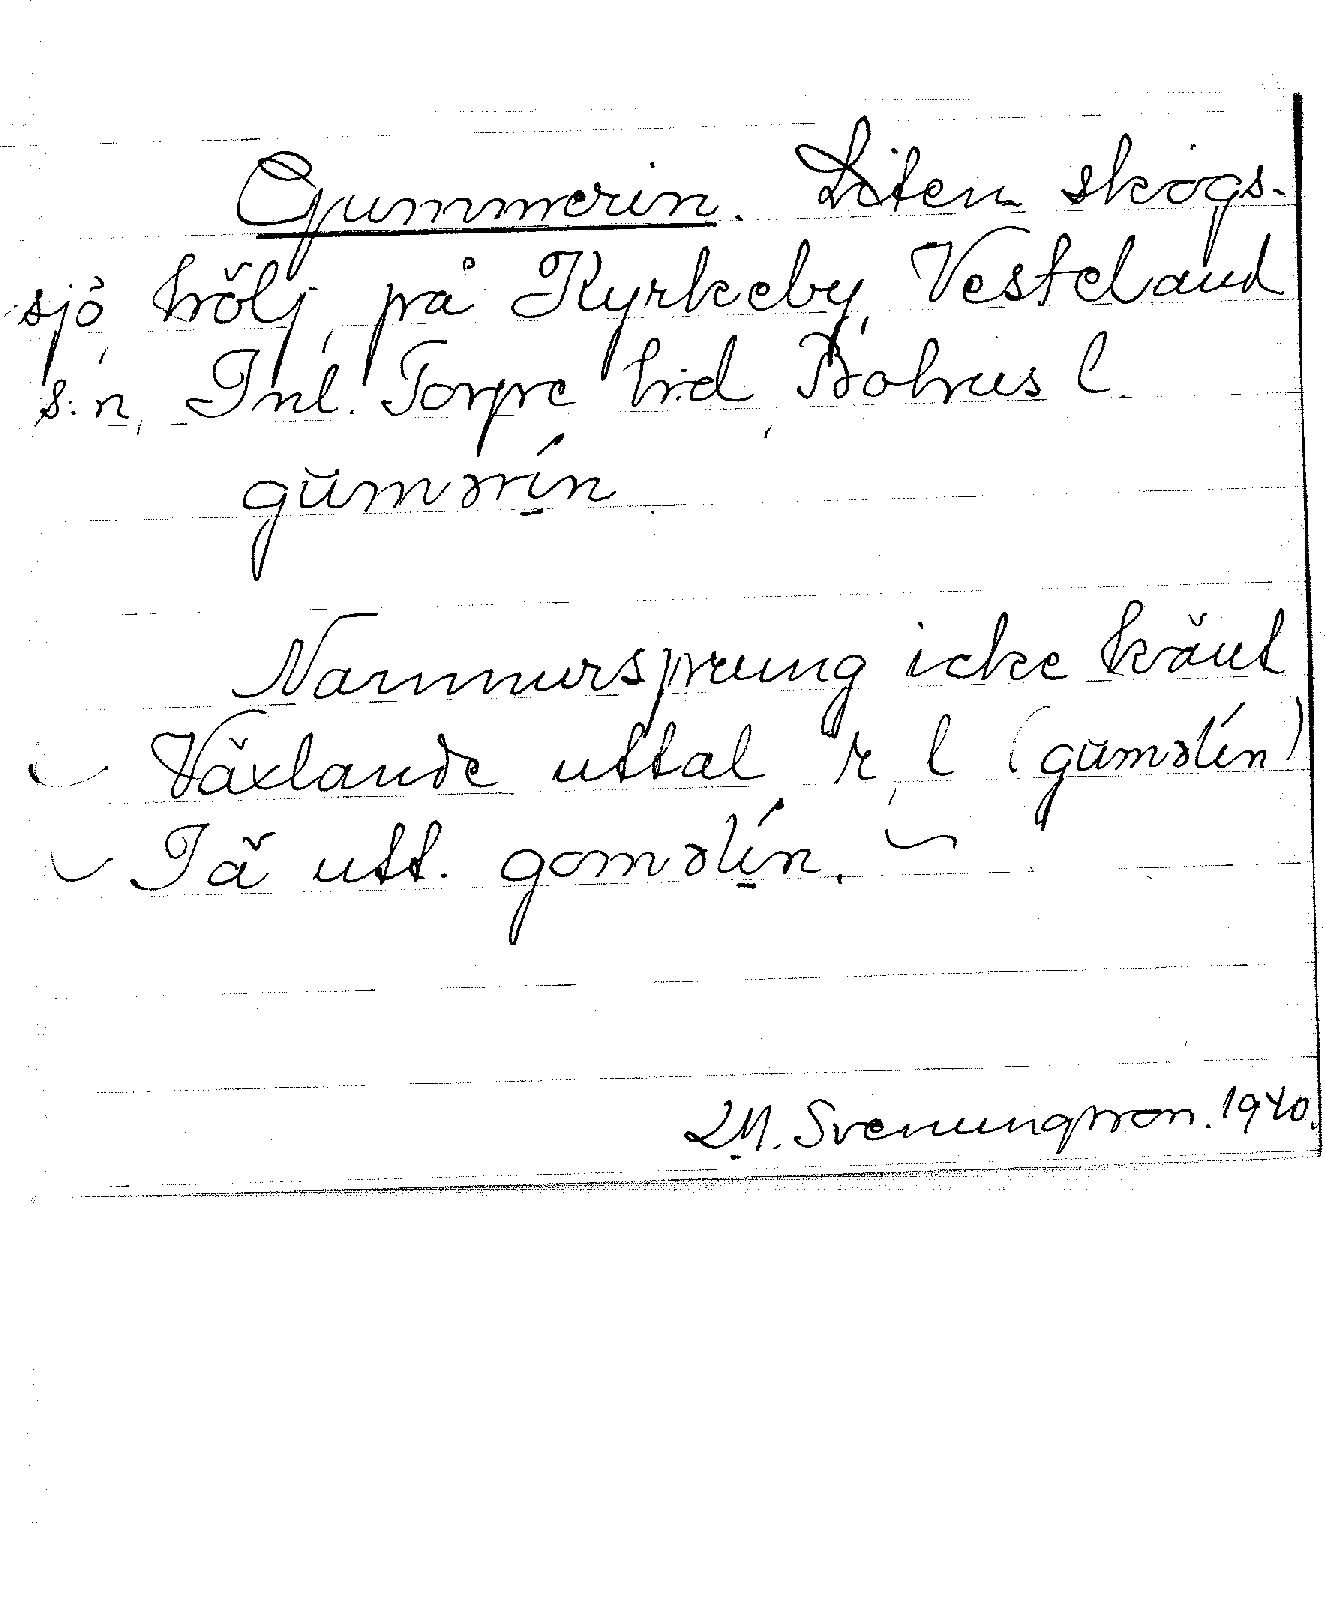 Gummerin. Liten skogs-
sjö, hölj, på Kyrkeby, Vesteland
s:n, Inl. Torpe h:d, Bohus l.
gŭmərín
Namnursprung icke känt
Växlande uttal r, l (gŭməlín)
Iä utt. goməlín.
L.M. Svenungsson. 1940.